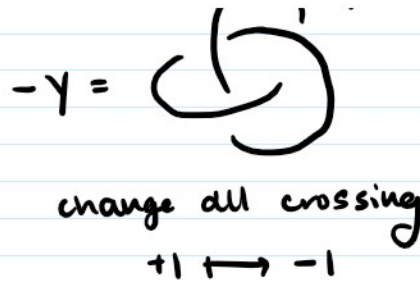 -Y =
change all crossing
+1 ⟼ -1